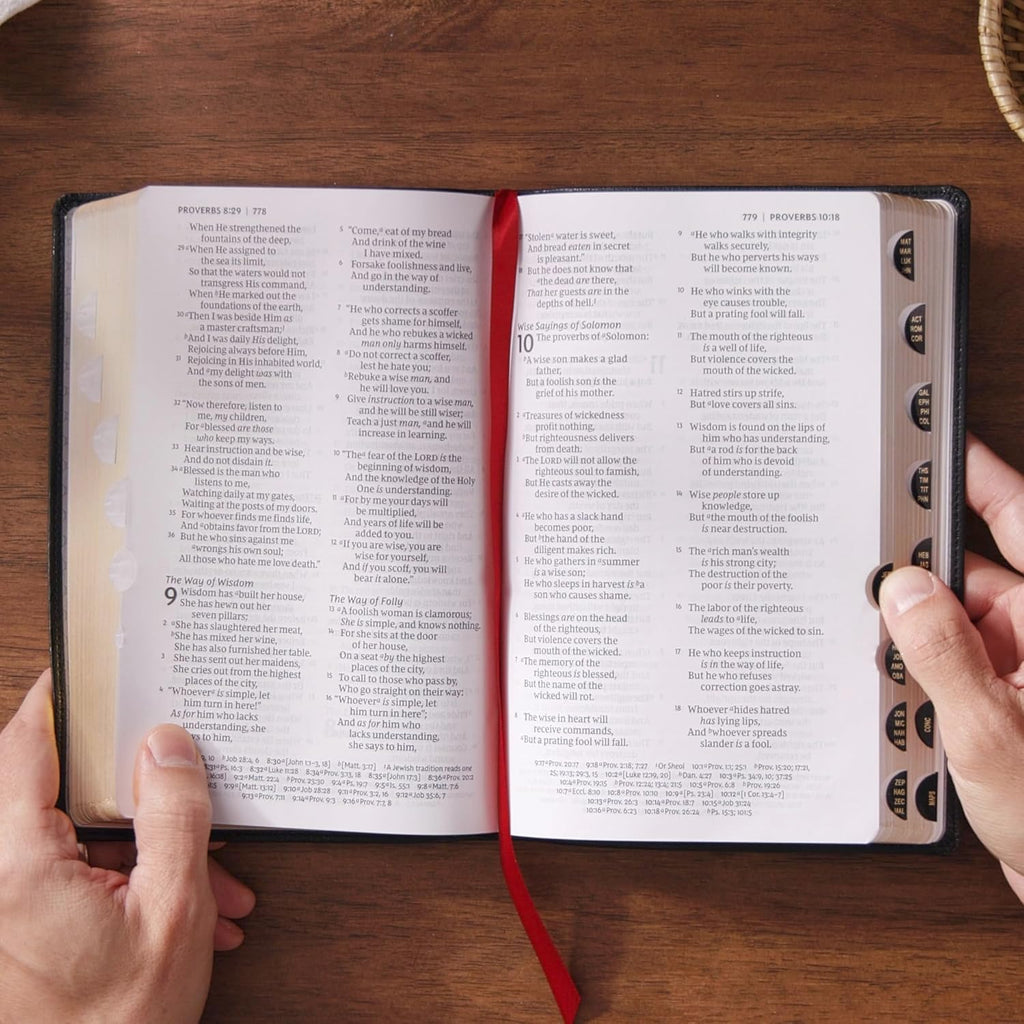 PROVERBS 8:29 | 778
When He strengthened the
fountains of the deep,
29 When He assigned to
the sea its limit,
So that the waters would not
transgress His command,
When He marked out the
foundations of the earth,
30 Then I was beside Him as
a master craftsman;
And I was daily His delight,
Rejoicing always before Him,
31 Rejoicing in His inhabited world,
And my delight was with
the sons of men.
32 "Now therefore, listen to
me, my children,
For blessed are those
who keep my ways.
33 Hear instruction and be wise,
And do not disdain it.
34 Blessed is the man who
listens to me,
Watching daily at my gates,
Waiting at the posts of my doors.
35 For whoever finds me finds life,
And obtains favor from the LORD;
36 But he who sins against me
wrongs his own soul;
All those who hate me love death."
The Way of Wisdom
9 Wisdom has built her house,
She has hewn out her
seven pillars;
2 She has slaughtered her meat,
She has mixed her wine,
She has also furnished her table.
3 She has sent out her maidens,
She cries out from the highest
places of the city,
4 "Whoever is simple, let
him turn in here!"
As for him who lacks
understanding, she
to him,
5 "Come, eat of my bread
And drink of the wine
I have mixed.
6 Forsake foolishness and live,
And go in the way of
understanding.
7 "He who corrects a scoffer
gets shame for himself,
And he who rebukes a wicked
man only harms himself.
8 Do not correct a scoffer,
lest he hate you;
Rebuke a wise man, and
he will love you.
9 Give instruction to a wise man,
and he will be still wiser;
Teach a just man, and he will
increase in learning.
10 "The fear of the LORD is the
beginning of wisdom,
And the knowledge of the Holy
One is understanding.
11 For by me your days will
be multiplied,
And years of life will be
added to you.
12 If you are wise, you are
wise for yourself,
And if you scoff, you will
bear it alone."
The Way of Folly
13 A foolish woman is clamorous;
She is simple, and knows nothing.
14 For she sits at the door
of her house,
On a seat by the highest
places of the city,
15 To call to those who pass by,
Who go straight on their way:
16 "Whoever is simple, let
him turn in here";
And as for him who
lacks understanding,
she says to him,
779 | PROVERBS 10:18
"Stolen water is sweet,
And bread eaten in secret
is pleasant."
But he does not know that
the dead are there,
That her guests are in the
depths of hell.
Wise Sayings of Solomon
10 The proverbs of Solomon:
A wise son makes a glad
father,
But a foolish son is the
grief of his mother.
2 Treasures of wickedness
profit nothing,
But righteousness delivers
from death.
3 The LORD will not allow the
righteous soul to famish,
But He casts away the
desire of the wicked.
4 He who has a slack hand
becomes poor,
But the hand of the
diligent makes rich.
5 He who gathers in summer
is a wise son;
He who sleeps in harvest is a
son who causes shame.
6 Blessings are on the head
of the righteous,
But violence covers the
mouth of the wicked.
7 The memory of the
righteous is blessed,
But the name of the
wicked will rot.
8 The wise in heart will
receive commands,
But a prating fool will fall.
9 He who walks with integrity
walks securely,
But he who perverts his ways
will become known.
10 He who winks with the
eye causes trouble,
But a prating fool will fall.
11 The mouth of the righteous
is a well of life,
But violence covers the
mouth of the wicked.
12 Hatred stirs up strife,
But love covers all sins.
13 Wisdom is found on the lips of
him who has understanding,
But a rod is for the back
of him who is devoid
of understanding.
14 Wise people store up
knowledge,
But the mouth of the foolish
is near destruction.
15 The rich man's wealth
is his strong city;
The destruction of the
poor is their poverty.
16 The labor of the righteous
leads to life,
The wages of the wicked to sin.
17 He who keeps instruction
is in the way of life,
But he who refuses
correction goes astray.
18 Whoever hides hatred
has lying lips,
And whoever spreads
slander is a fool.
MAT
MAR
LUK
ACT
ROM
COR
GAL
EPH
PHI
COL
THS
TIM
TIT
PHN
HEB
AMO
OBA
JON
MIC
NAH
HAB
CONC
ZEP
HAG
ZEC
MAL
MAPS